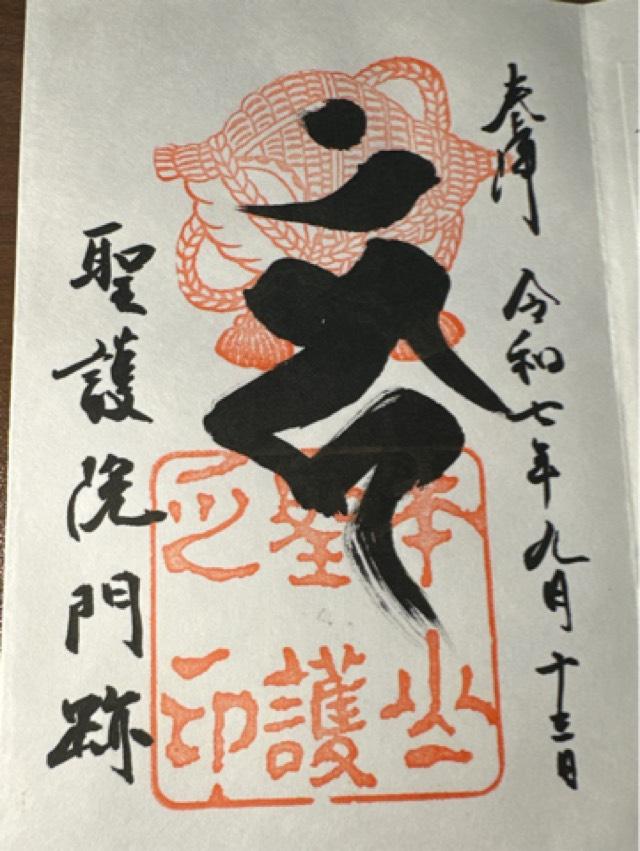 奉拝 令和七年九月十三日
本山
聖護
之印
聖護院門跡